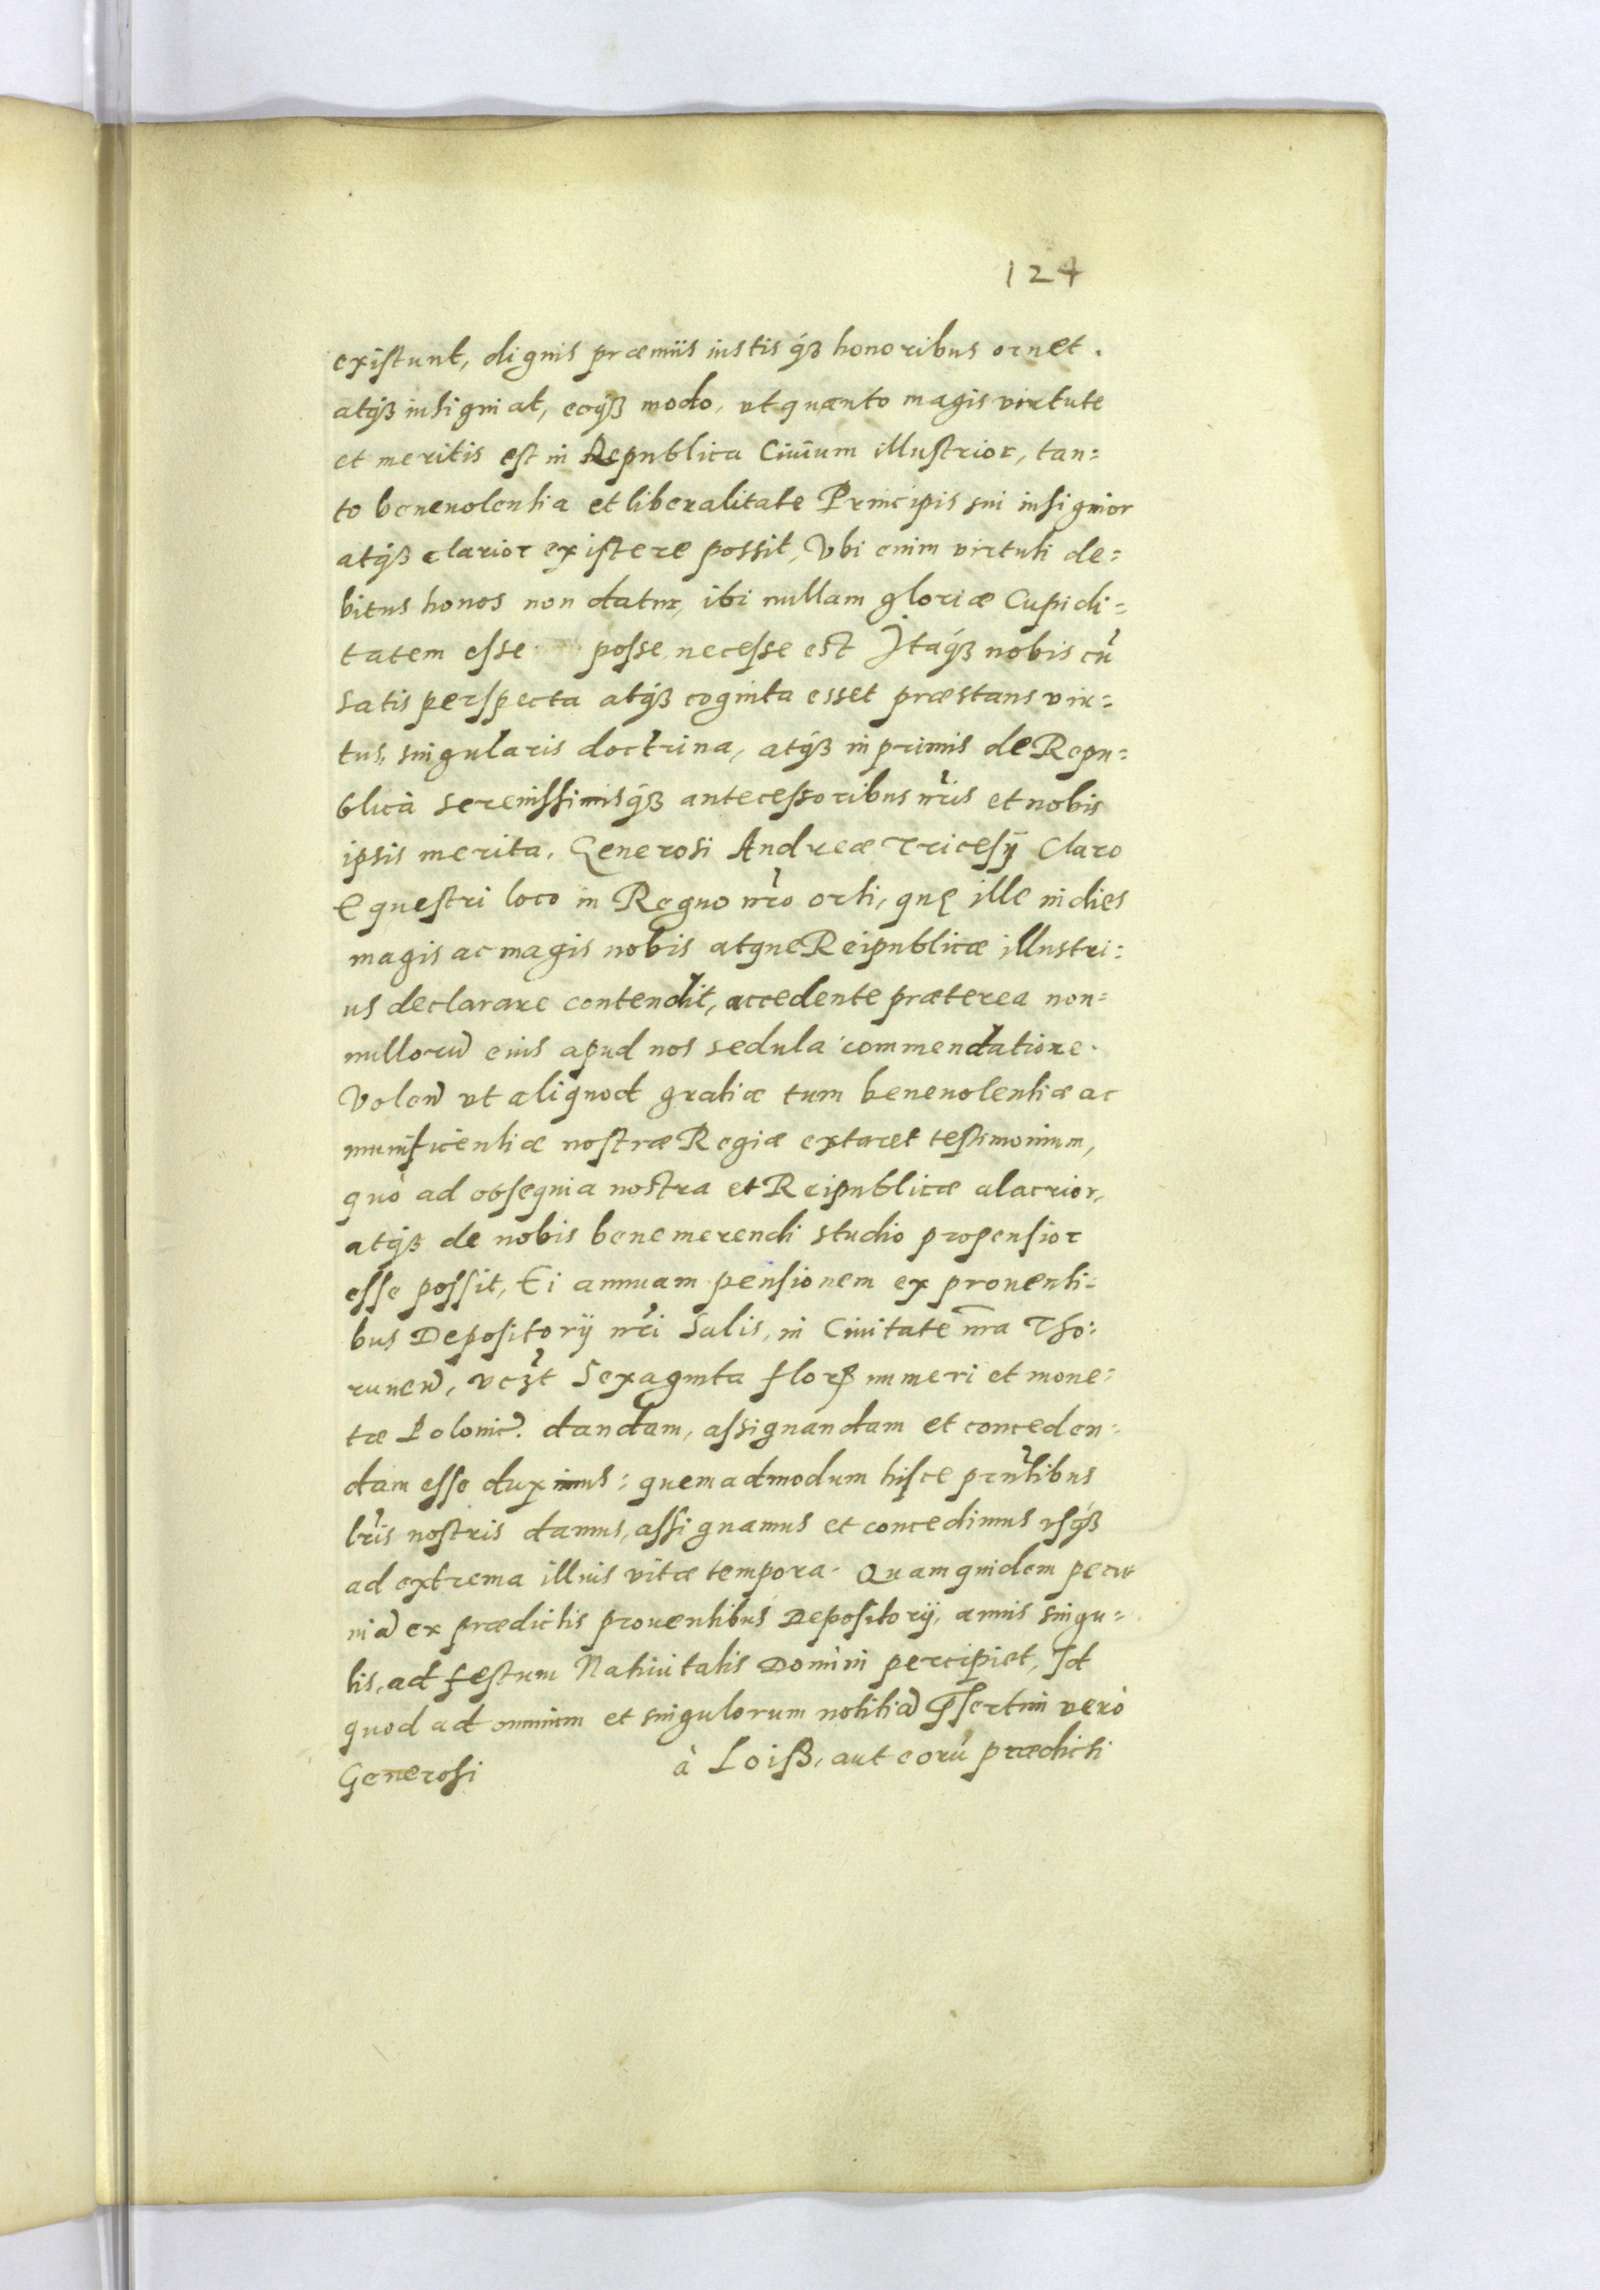 124
existunt, dignis præmiis iustis q́ꝫ honoribus ornet.
atq́ꝫ insigniat, eoq́ꝫ modo, vt quanto magis virtute
et meritis est in Republica Ciuium illustrior, tan=
to beneuolentia et liberalitate Principis sui insignior
atq́ꝫ clarior existere possit, Vbi enim virtuti de=
bitus honos non datur, ibi nullam gloriæ Cupidi=
tatem esse posse necesse est Itaq́ꝫ nobis cũ
satis perspecta atq́ꝫ cognita esset præstans vir=
tus, singularis doctrina, atq́ꝫ in primis de Repu=
blicà serenissimisq́ꝫ antecessoribus nr̃is et nobis
ipsis merita. Generosi Andreæ Tricesij Claro
Equestri loco in Regno nr̃o orti, quę ille indies
magis ac magis nobis atque Reipublicæ illustri=
us declarare contendit, accedente præterea non=
nullorũ eius apud nos sedula commendatione.
Volen̄ vt aliquod gratiæ tum beneuolentiæ ac
munificentiæ nostræ Regiæ extaret testimonium,
quò ad obsequia nostra et Reipublicæ alacrior,
atq́ꝫ de nobis benemerendi studio propensior
esse possit, Ei annuam pensionem ex prouenti=
bus Depositorij nr̃i Salis, in Ciuitate nr̃a Tho=
runen̄, vcꝫt Sexaginta florꝫ numeri et mone=
tæ Polonic̄. dandam, assignandam et conceden=
dam esse duximus: quemadmodum hisce prñtibus
lr̃is nostris damus, assignamus et concedimus vsq́ꝫ
ad extrema illius vitæ tempora. Quamquidem pecu
niã ex prædictis prouentibus Depositorij, annis singu=
lis, ad festum Natiuitatis Domini percipiet, Id
quod ad omnium et singulorum notitiã p̃sertim verò
Generosi à Loiß, aut eorũ prædicti